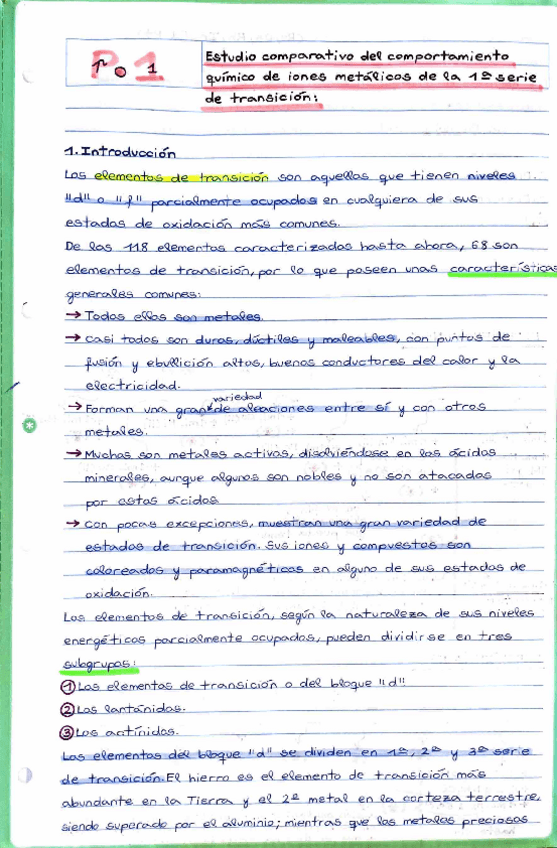 P. 1
Estudio comparativo del comportamiento
químico de iones metálicos de la 1ª serie
de transición:
1. Introducción
Los elementos de transición son aquellos que tienen niveles
"d" o "f" parcialmente ocupados en cualquiera de sus
estados de oxidación más comunes.
De los 118 elementos caracterizados hasta ahora, 68 son
elementos de transición, por lo que poseen unas características
generales comunes:
→ Todos ellos son metales.
→ Casi todos son duros, dúctiles y maleables, con puntos de
fusión y ebullición altos, buenos conductores del calor y la
electricidad.
variedad
→ Forman una gran de aleaciones entre sí y con otros
metales.
→ Muchos son metales activos, disolviéndose en los ácidos
minerales, aunque algunos son nobles y no son atacados
por estos ácidos
→ Con pocas excepciones, muestran una gran variedad de
estados de transición. Sus iones y compuestos son
coloreados y paramagnéticos en alguno de sus estados de
oxidación.
Los elementos de transición, según la naturaleza de sus niveles
energéticos parcialmente ocupados, pueden dividirse en tres
subgrupos:
1 Los elementos de transición o del bloque "d"
2 Los lantánidos.
3 Los actínidos.
Los elementos del bloque "d" se dividen en 1ª, 2ª y 3ª serie
de transición. El hierro es el elemento de transición más
abundante en la Tierra y el 2º metal en la corteza terrestre,
siendo superado por el aluminio; mientras que los metales preciosos